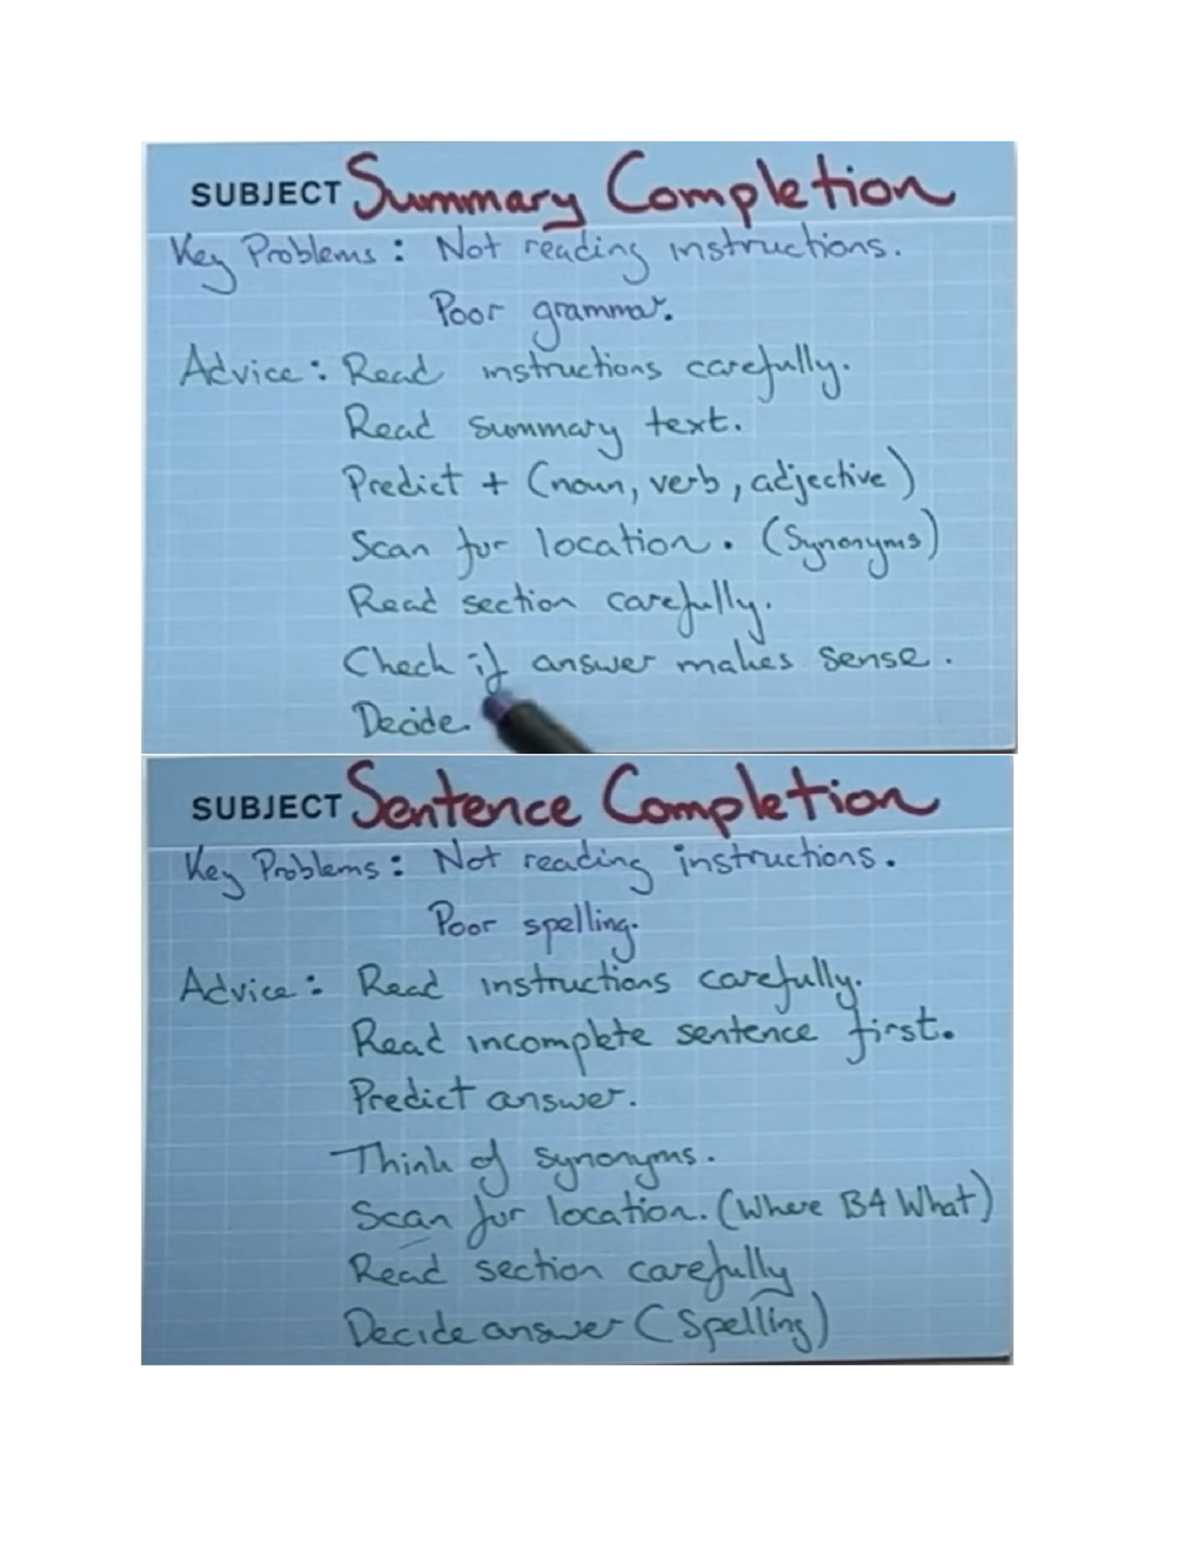 SUBJECT Summary Completion
Key Problems: Not reading instructions.
Poor grammar.
Advice: Read instructions carefully.
Read summary text.
Predict + (noun, verb, adjective)
Scan for location. (Synonyms)
Read section carefully.
Check if answer makes sense.
Decide.
SUBJECT Sentence Completion
Key Problems: Not reading instructions.
Poor spelling.
Advice: Read instructions carefully.
Read incomplete sentence first.
Predict answer.
Think of synonyms.
Scan for location. (Where B4 What)
Read section carefully
Decide answer (Spelling)